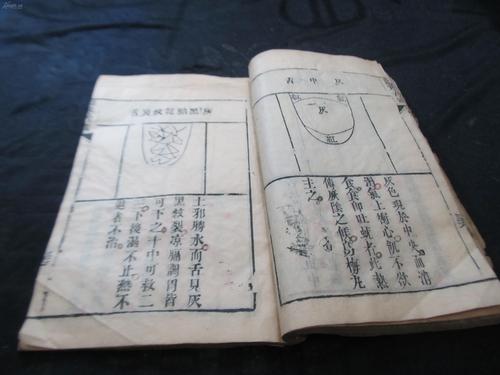 灰中舌
紅
紅
灰
紅
灰色現於中央而消
渴氣上衝心飢不欲
食食即吐蚘者此熱
傷厥陰之候烏梅丸
主之
土邪勝水而舌見灰
黑紋裂凉膈調胃皆
可下之十中可救二
三下後渴不止熱不
退者不治